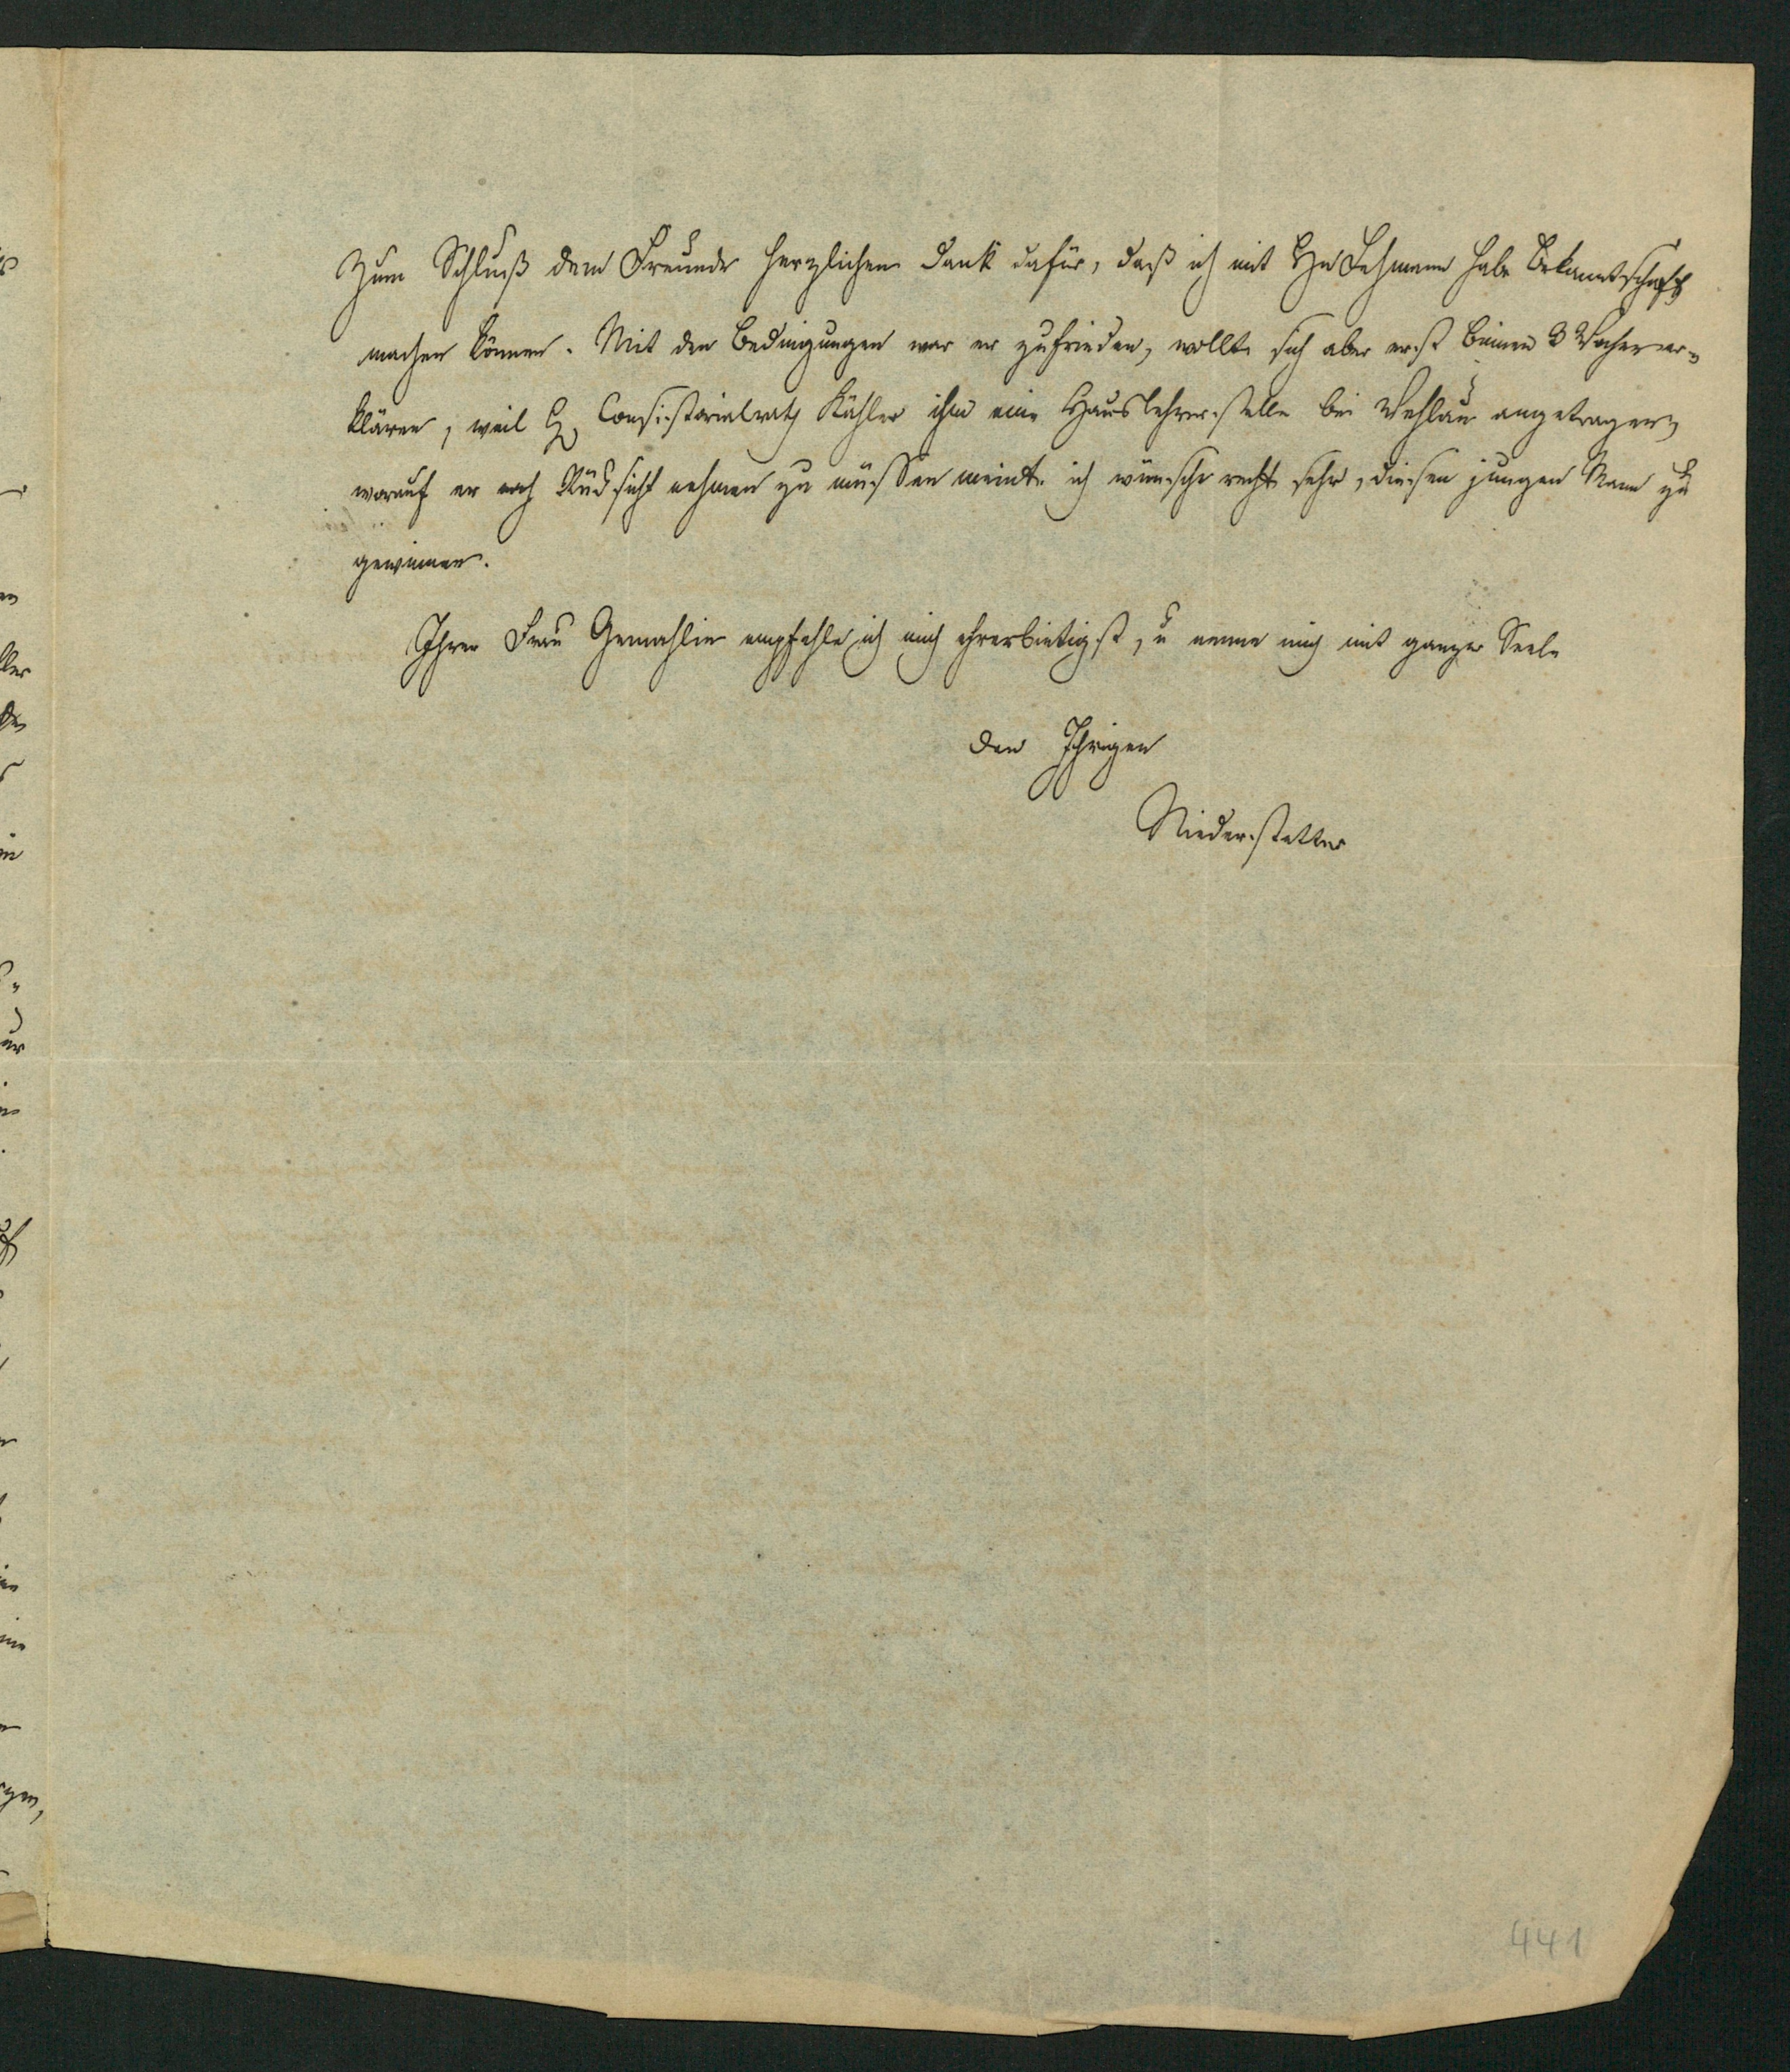 Zum Schluß dem Freunde herzlichen Dank dafür, daß ich mit Hn Lehmann habe Bekanntschaft
machen können. Mit den Bedingungen war er zufrieden, wollte sich aber erst binnen 3 Wochen er=
klären, weil H. Consistorialrath Kähler ihm eine Hauslehrerstelle bei Wehlau angetragen,
worauf er noch Rücksicht nehmen zu müssen meinte. ich wünsche recht sehr, diesen jungen Mann zu
gewinnen.
Ihrer Frau Gemahlin empfehle ich mich ehrerbietigst, u nenne mich mit ganzer Seele
den Ihrigen
Niederstetter
441